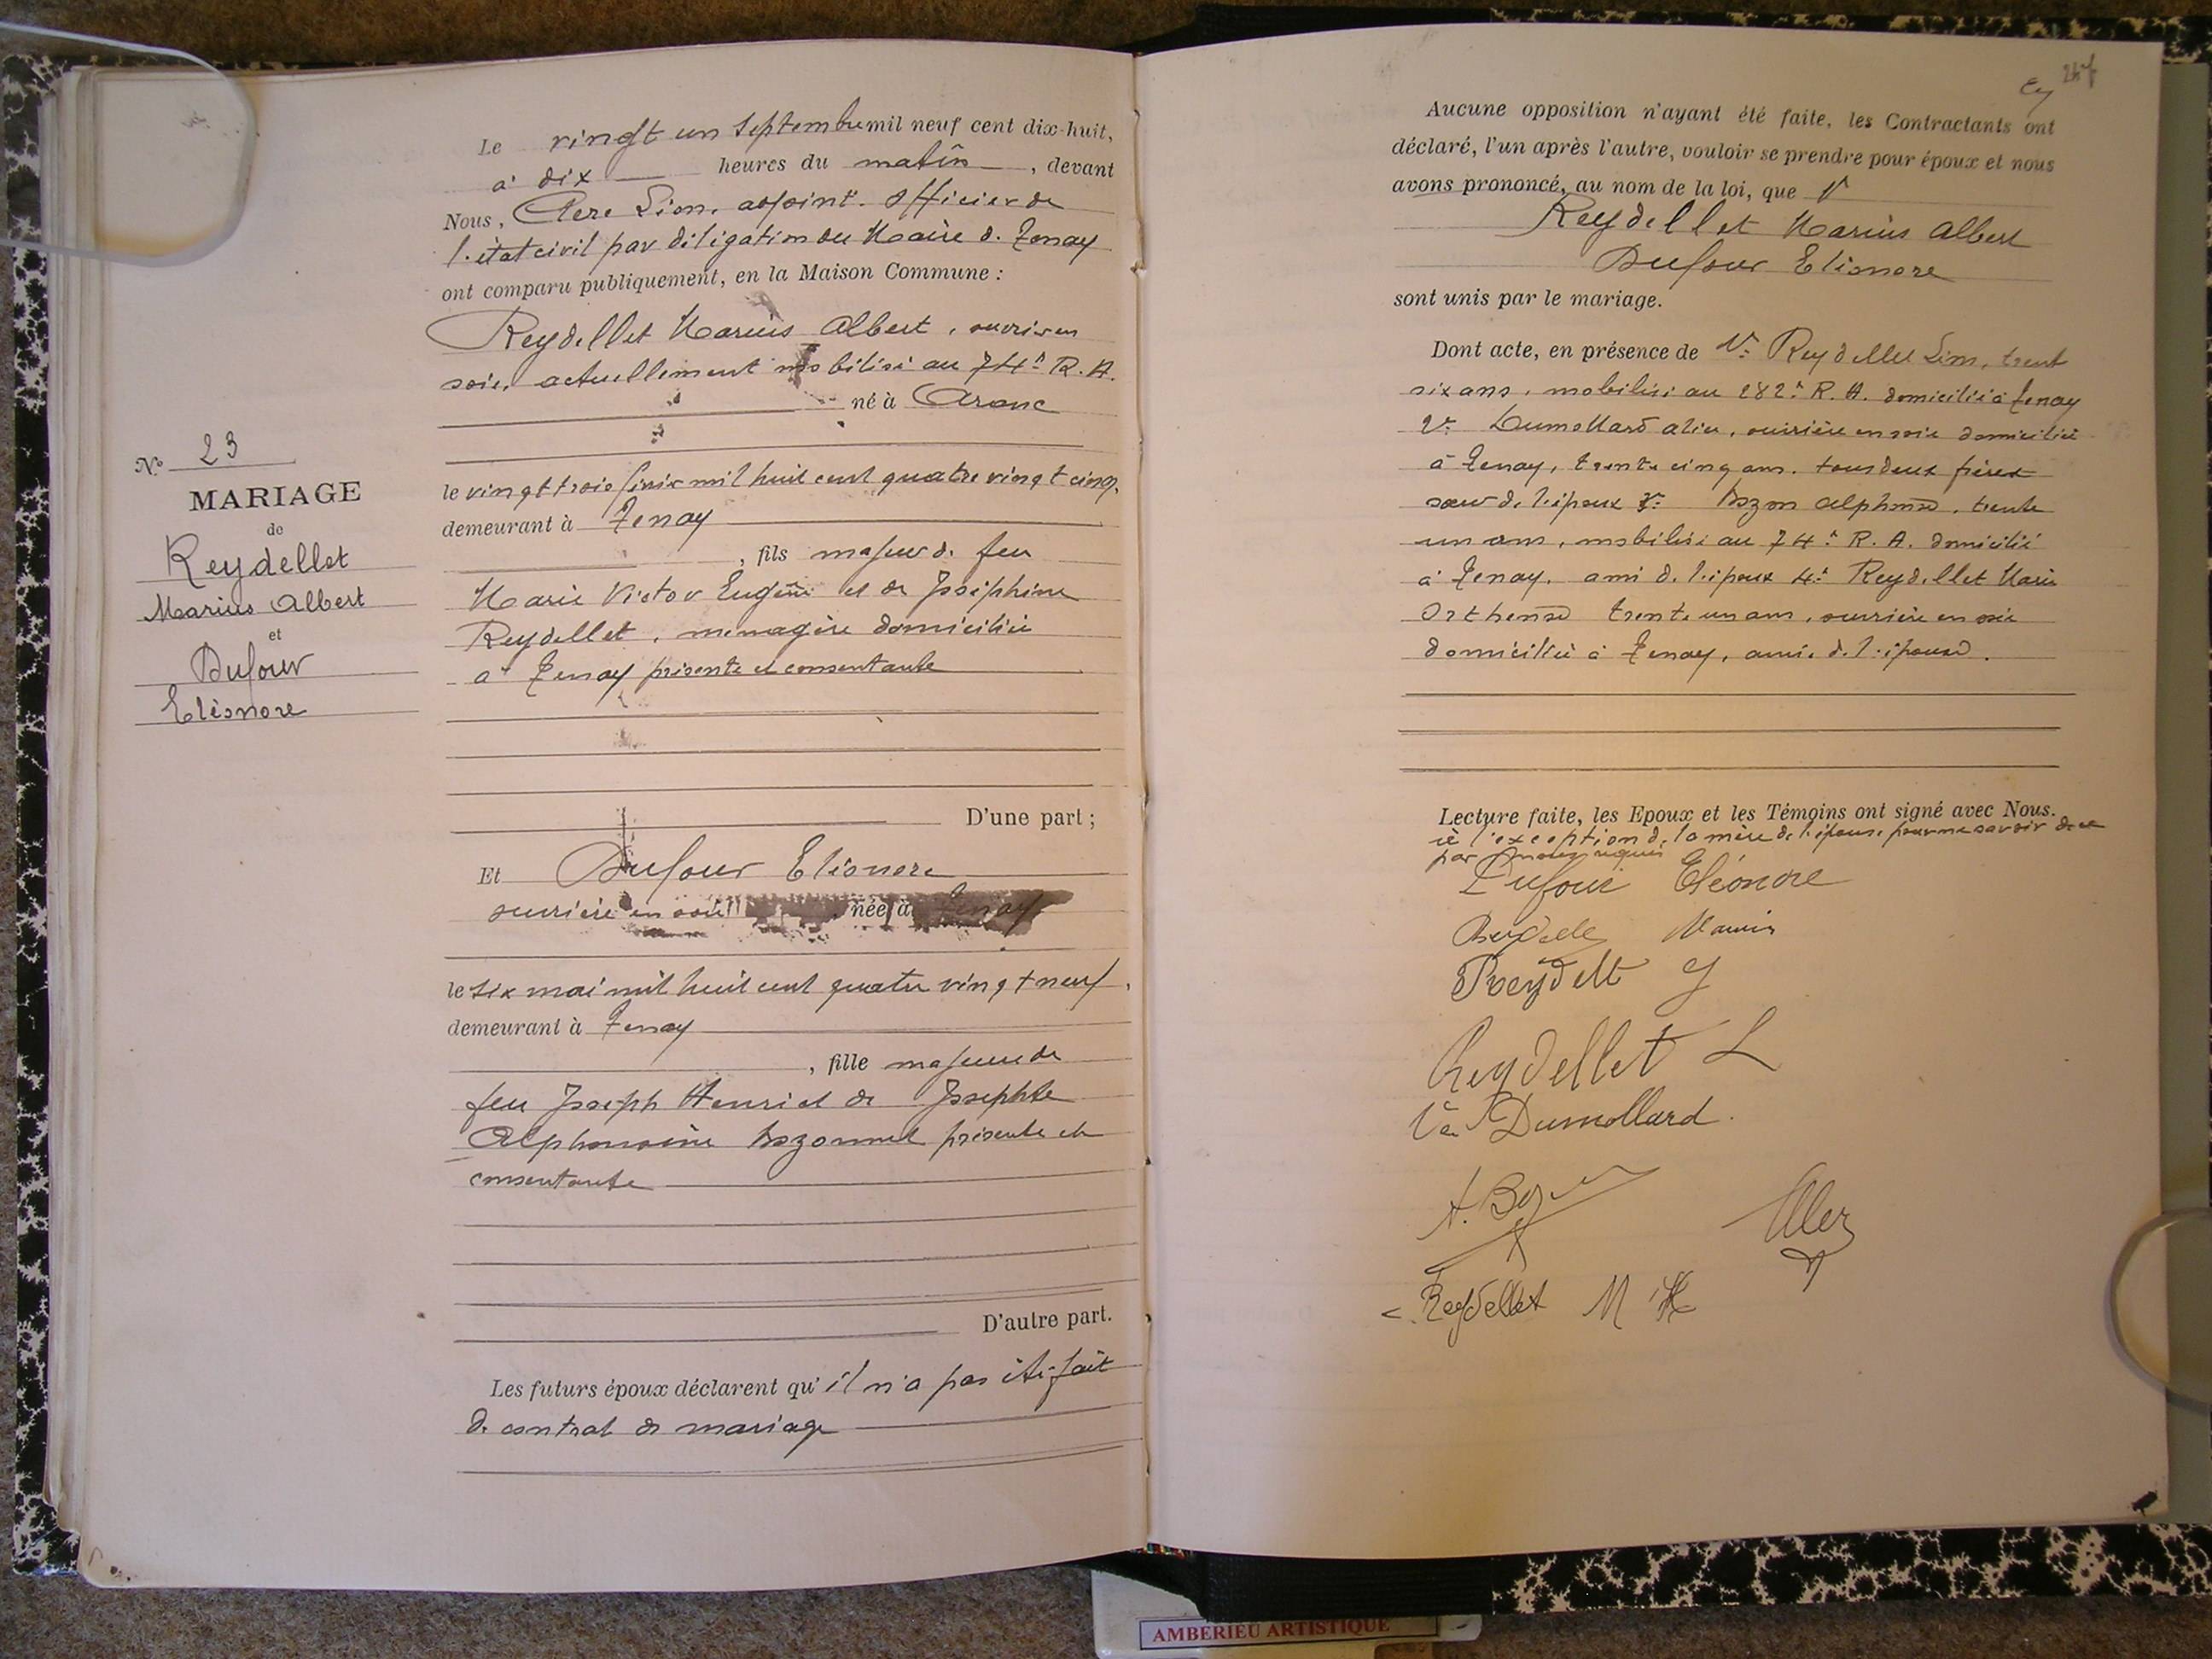 Le vingt un Septembre mil neuf cent dix-huit,
à dix heures du matin, devant
Nous, Clere Léon, adjoint. Officier de
l'état civil par déligation du Maire de Tenay
ont comparu publiquement, en la Maison Commune :
Reydellet Marius Albert, ouvrier en
soie, actuellement mobilisé au 74e R. A.
né à Aranc
N° 23
MARIAGE
de
Reydellet
Marius Albert
et
Dufour
Eléonore
le vingt trois mil huit cent quatre vingt cinq,
demeurant à Tenay
, fils majeur de feu
Marie Victor Eugène et de Joséphine
Reydellet, ménagère domiciliée
à Tenay présente et consentante
D'une part ;
Et Dufour Eléonore
ouvrière en soie née à Tenay
le six mai mil huit cent quatre vingt neuf,
demeurant à Tenay
, fille majeure de
feu Joseph Henri et de Josephte
Alphonsine présente et
consentante
D'autre part.
Les futurs époux déclarent qu'il n'a pas été fait
de contrat de mariage
Aucune opposition n'ayant été faite, les Contractants ont
déclaré, l'un après l'autre, vouloir se prendre pour époux et nous
avons prononcé, au nom de la loi, que
Reydellet Marius Albert
Dufour Eléonore
sont unis par le mariage.
Dont acte, en présence de 1° Reydellet Léon, trent
six ans, mobilisé au 282e R. A. domicilié à Tenay
2° Dumollard, ouvrière en soie domiciliée
à Tenay, trente cinq ans. tous deux frère et
sœur de l'époux 3° Bozon Alphonse, trente
un ans, mobilisé au 74e R. A. domicilié
à Tenay, ami de l'époux 4° Reydellet Marie
Orthense trente un ans, ouvrière en soie
domiciliée à Tenay, amie de l'épouse.
Lecture faite, les Epoux et les Témoins ont signé avec Nous.
à l'exception de la mère de l'épouse pour ne savoir de ce
par nous requis
Dufour Eléonore
Marius
Reydellt J
Reydellet L
Ve Dumollard
A. Bozon
Reydellet M H
AMBERIEU ARTISTIQUE